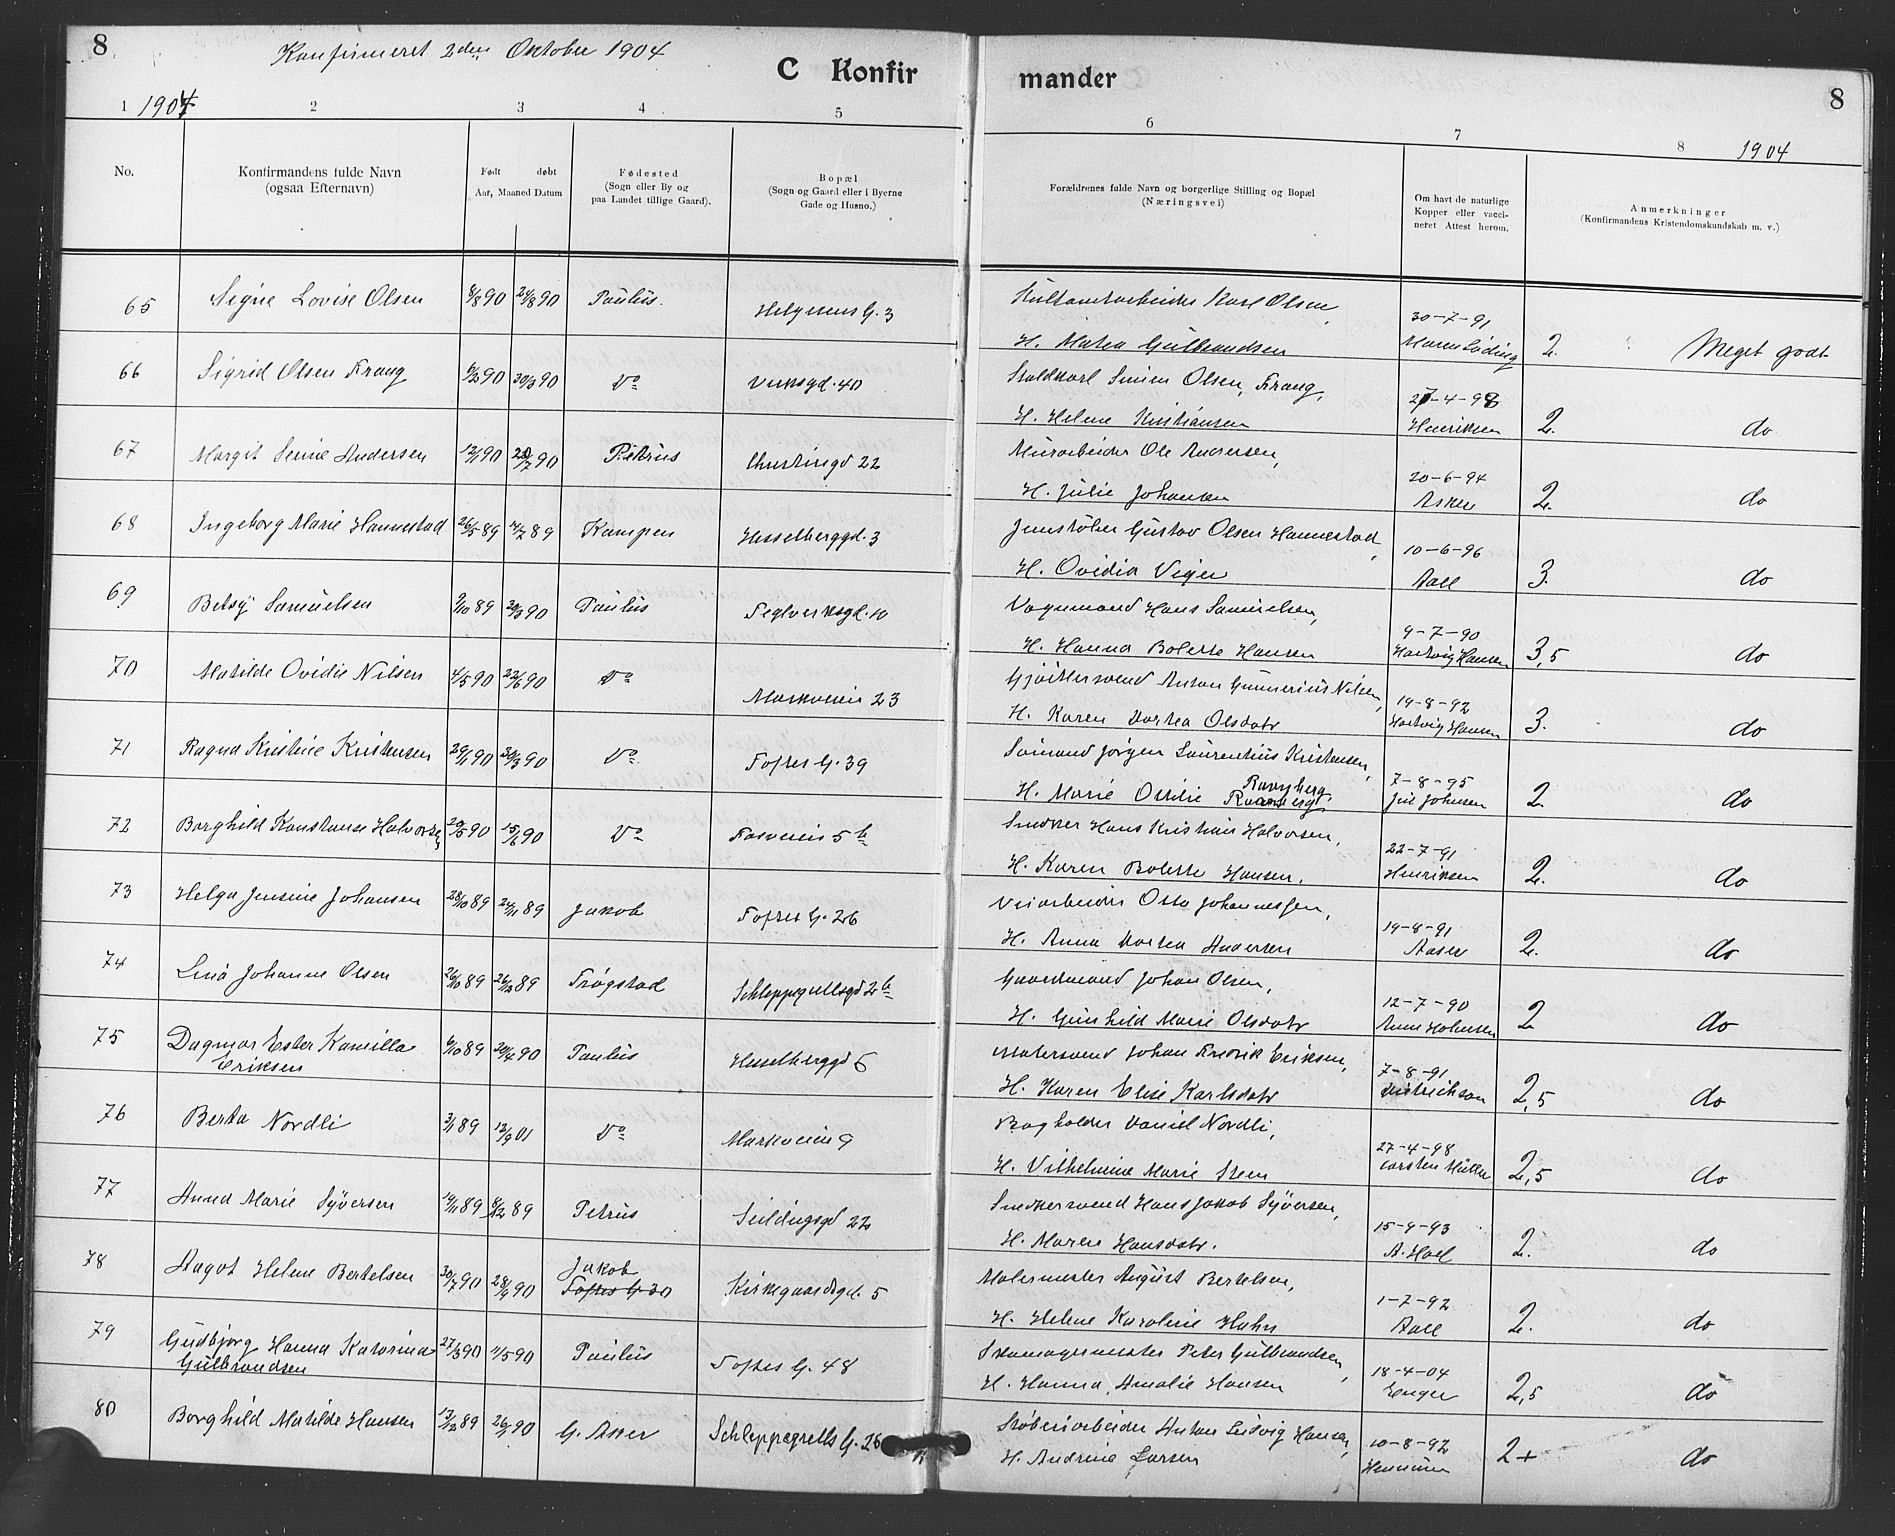 8 Konfirmeret 2den Oktober 1904
C Konfirmander 8
1 1904 2 3 4 5 6 7 8 1904
No.
Konfirmandens fulde Navn
(ogsaa Efternavn)
Født døbt
Aar, Maaned Datum
Fødested
(Sogn eller By og
paa Landet tillige Gaard).
Bopæl
(Sogn og Gaard eller i Byerne
Gade og Husno.)
Forældrenes fulde Navn og borgerlige Stilling og Bopæl
(Næringsvei)
Om havt de naturlige
Kopper eller vacci-
neret Attest herom.
Anmerkninger
(Konfirmandens Kristendomskundskab m. v.)
65 Signe Lovise Olsen 8/8 90 24/8 90 Paulus Helgesens G. 3 Karl Olsen, 30-7-91
H. Matea Gulbrandsen Maren Löding 2. Meget godt
66 Sigrid Olsen Krang 6/2 90 30/3 90 Do Verksgd. 40 Staldkarl Simen Olsen Krang, 27-4-98
H. Helene Kristiansen Henriksen 2. do
67 Margit Senine Andersen 12/1 90 20/7 90 Petrus Christinsgd 22 Murarbeider Ole Andersen, 20-6-94
H. Julie Johansen Asker 2. do
68 Ingeborg Marie Hannestad 26/5 89 14/7 89 Kampen Hesselberggd. 3 Jernstøber Gustav Olsen Hannestad, 10-6-96
H. Ovidia Viger Aall 3. do
69 Betsy Samuelsen 9/10 89 30/3 90 Paulus Teglverksgd. 10 Vognmand Hans Samuelsen, 9-7-90
H. Hanna Bolette Hansen Hartvig Hansen 3,5 do
70 Matilde Ovidie Nilsen 4/5 90 22/6 90 Do Markveien 23 Gjørtlersvend Anton Gunnerius Nilsen, 19-8-92
H. Karen Dortea Olsdatr Hartvig Hansen 3. do
71 Ragna Kristine Kristensen 29/1 90 30/3 90 Do Toftes G. 39 Sømand Jørgen Laurentius Kristensen, 7-8-95
H. Marie Ottilie Ravnberg. Jul Johnsen 2 do
72 Borghild Konstanse Halvorsen 20/5 90 15/6 90 Do Fossveien 5 b Snedker Hans Kristian Halvorsen, 22-7-91
H. Karen Bolette Hansen. Henriksen 2. do
73 Helga Jensine Johansen 28/10 89 24/11 89 Jakob Toftes G. 26 Veiarbeider Otto Johannessen, 19-8-91
H. Anna Dortea Andersen Aaser 2. do
74 Lina Johanne Olsen 26/10 89 26/12 89 Trøgstad Schleppegrellsgd 2 b Gaardmand Johan Olsen, 12-7-90
H. Gunhild Marie Olsdatr Anne Holmsen 2 do
75 Dagmar Ester Kamilla 6/10 89 20/4 90 Paulus Hesselberggd 6 Malersvend Johan Fredrik Eriksen, 7-8-91
Eriksen H. Karen Elise Karlsdatr Didrickson 2,5 do
76 Berta Nordli 3/1 89 12/9 01 Do Markveien 9 Bogholder Daniel Nordli, 27-4-98
H. Vilhelmine Marie Steen Carsten Müller 2,5 do
77 Anna Marie Syversen 14/11 89 8/12 89 Petrus Seildugsgd 22 Snedkersvend Hans Jakob Syversen, 15-9-93
H. Maren Hansdatr. A. Hoel 2. do
78 Aagot Helene Bertelsen 30/7 90 28/9 90 Jakob Toftes G 30 Kirkegaardsgd. 5 Malermester August Bertelsen, 1-7-92
H. Helene Karoline Hahn Aall 2. do
79 Gudbjørg Hanna Katarina 27/3 90 11/5 90 Paulus Toftes G. 48 Skomagermester Peter Gulbrandsen, 18-4-04
Gulbrandsen H. Hanna Amalie Hansen Enger 2,5 do
80 Borghild Matilde Hansen 17/12 89 26/1 90 G. Aker Schleppegrells G. 26 Støberiarbeider Anton Ludvig Hansen, 10-8-92
H. Andrine Larsen 2+ do